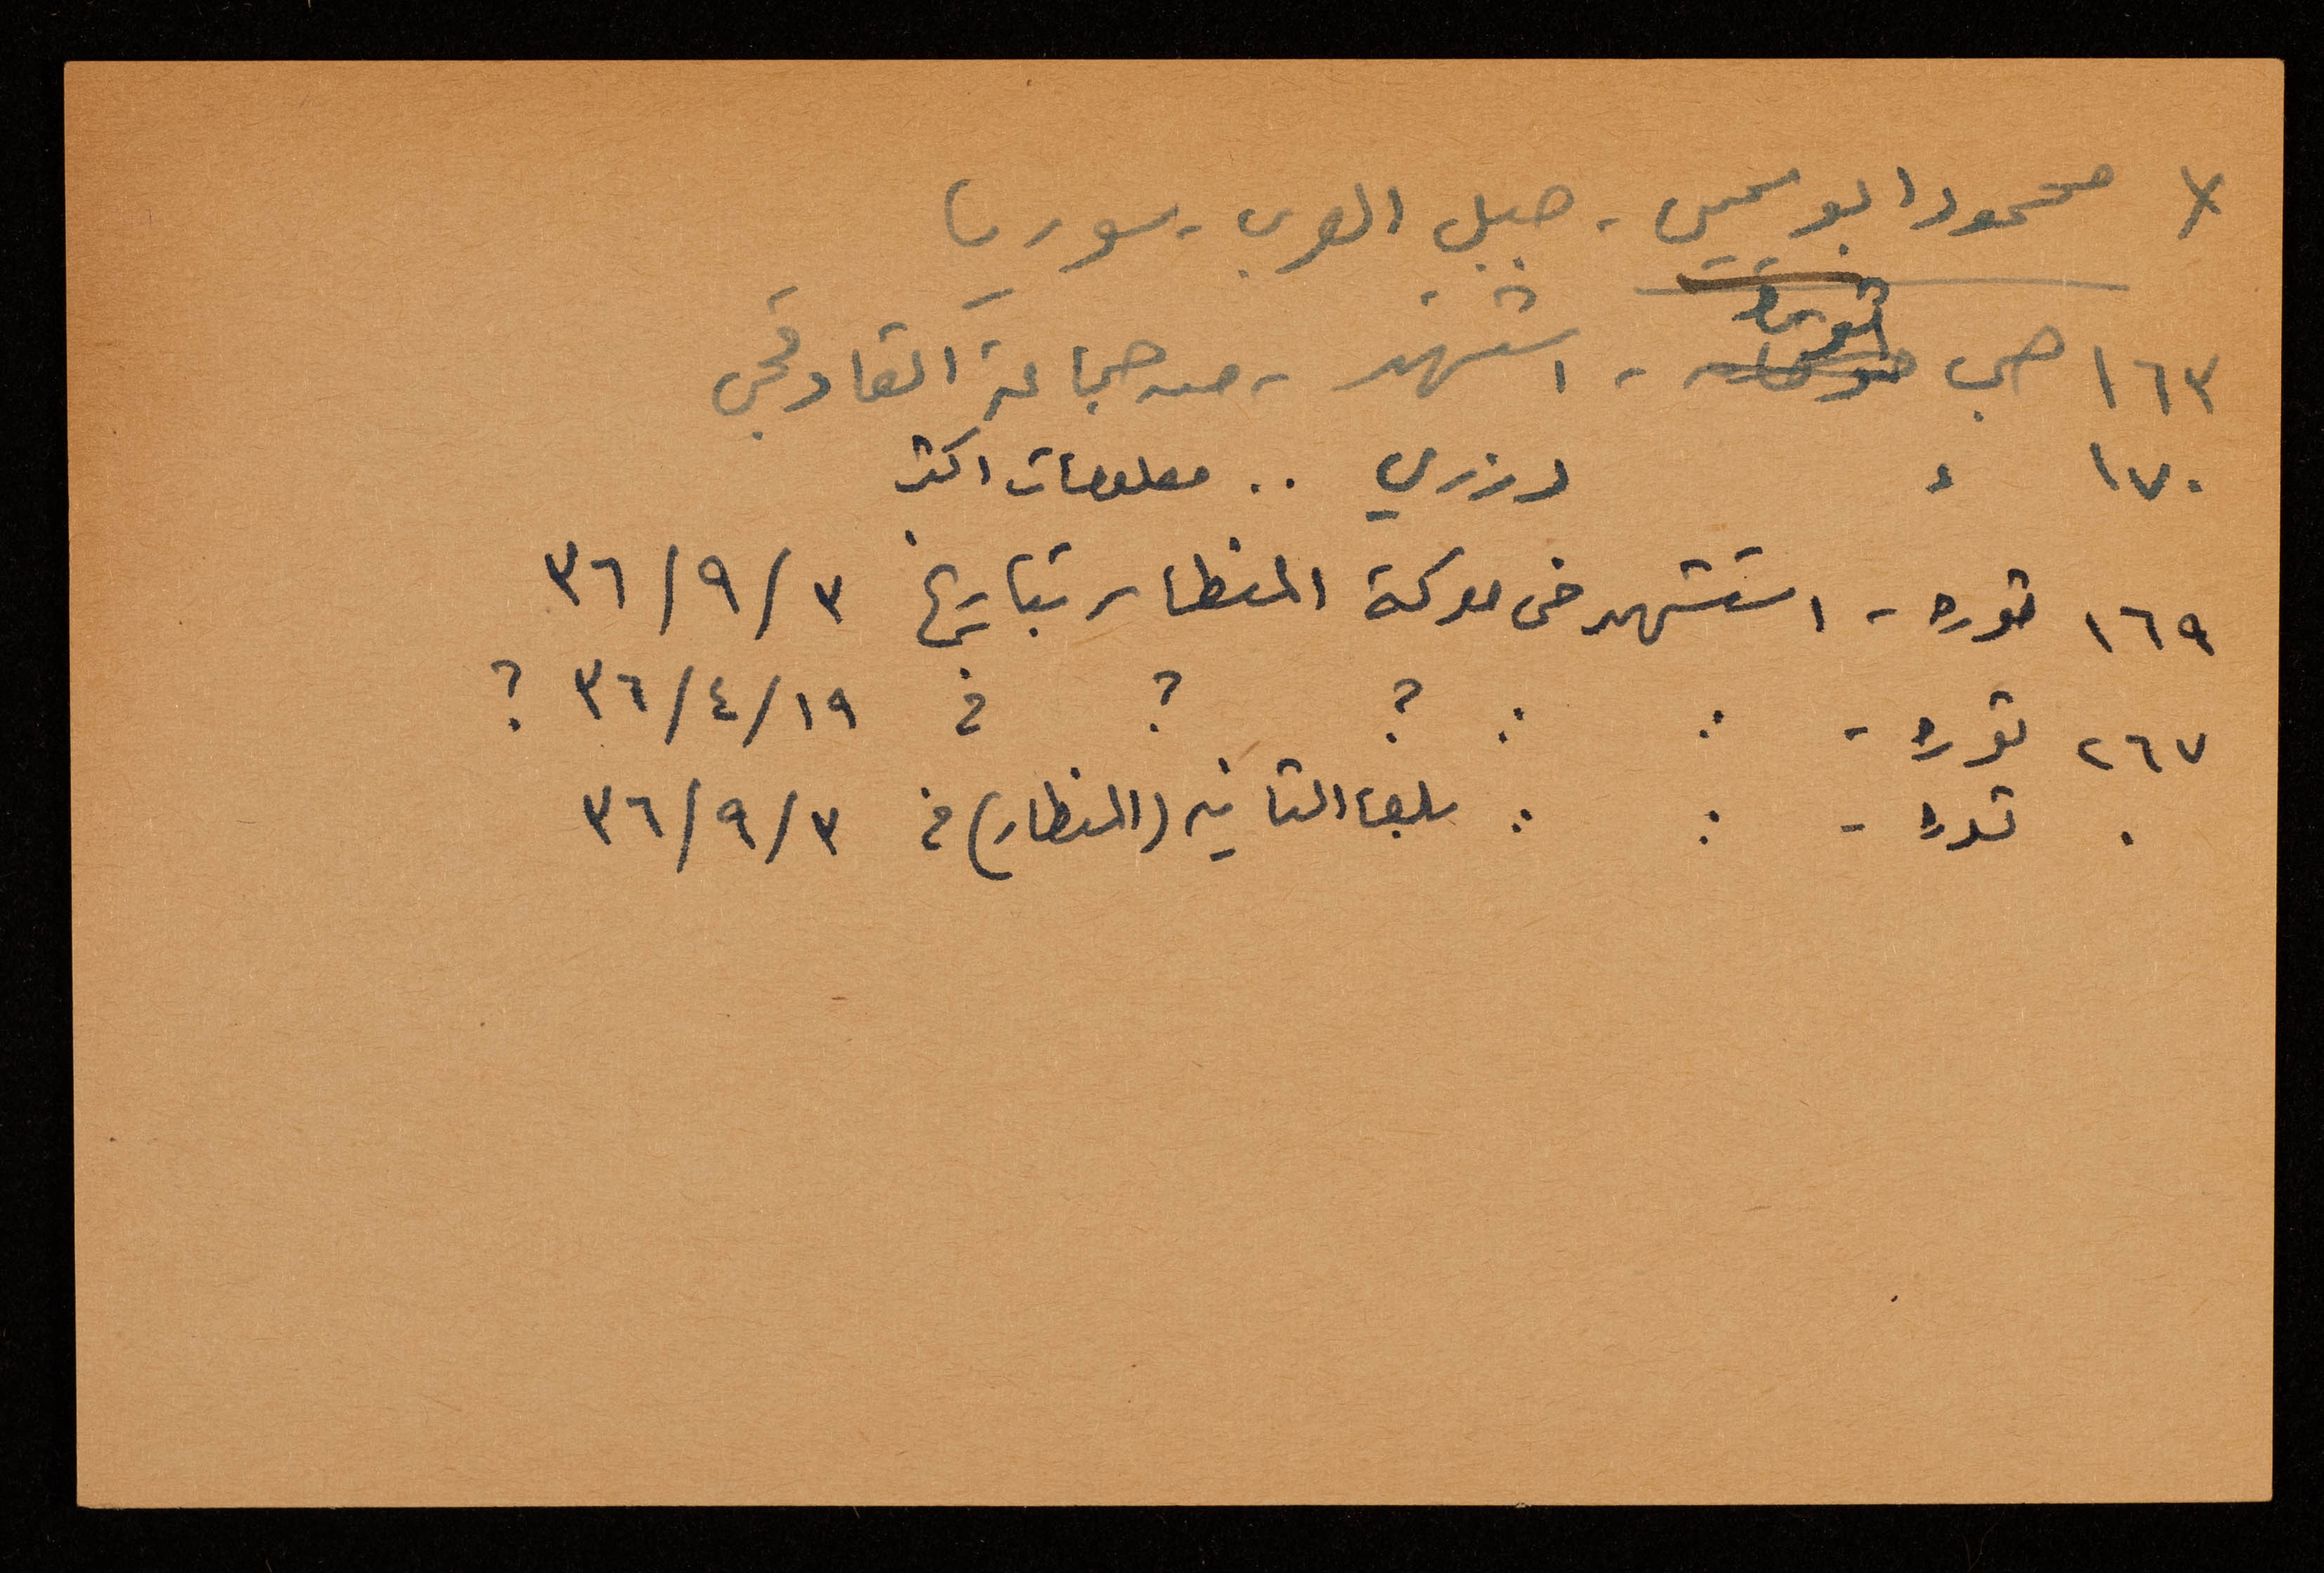 x محمود ابو يحيى - جبل العرب - سوريا
١٦٣ صبحي - استشهد - من جماعة القاوقجي
١٧٠ درزي .. معلومات اكثر
١٦٩ ثوره - استشهد في معركة المنطار بتاريخ ٣/٩/٣٦
٢٦٧ ثوره - : : ? ? في ١٩/٤/٣٦ ?
. ثوره - : : بلعا الثانيه (المنطار) في ٣/٩/٣٦